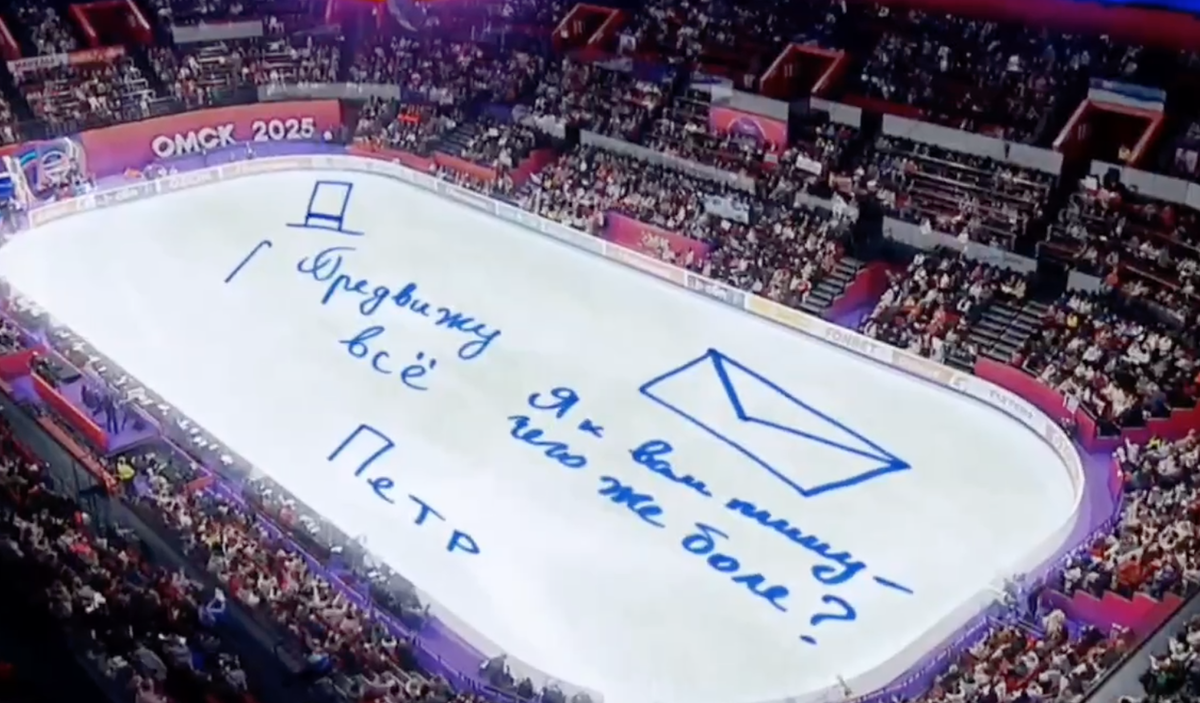 ОМСК 2025
Предвижу
всё
Петр
Я к вам пишу –
чего же боле?
FONBET